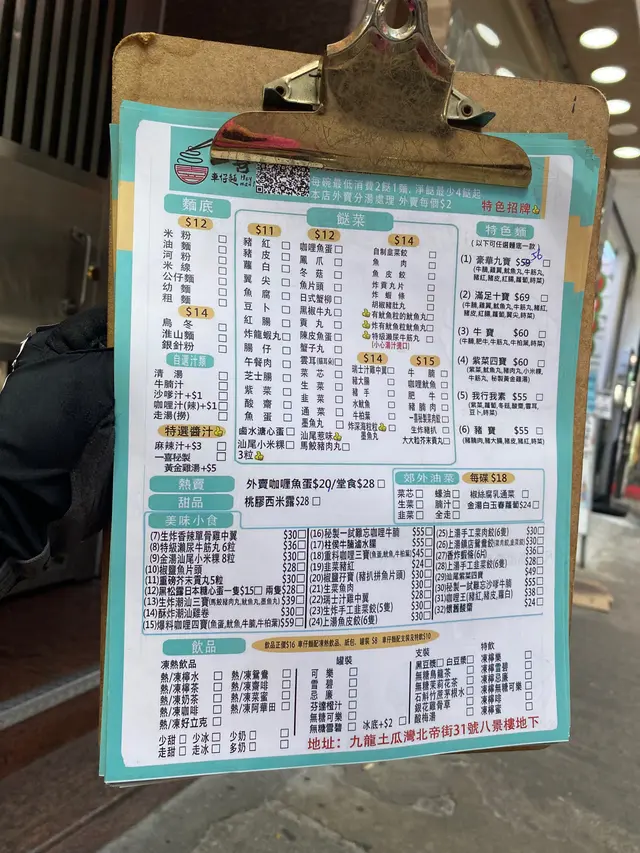 車仔麵
每碗最低消費2餸1麵,淨餸最少4餸起
本店外賣分湯處理 外賣每個$2
麵底
$12
米粉
油麵
河粉
米線
公仔麵
幼麵
粗麵
$14
烏冬
淮山麵
銀針粉
自選汁類
清湯
牛腩汁
沙嗲汁+$1
咖喱汁(辣)+$1
走湯(撈)
特選醬汁
麻辣汁+$3
一喜秘製
黃金雞汁+$5
餸菜
$11
豬紅
豬皮
蘿白
翼尖
魚腐
豆卜
紅腸
炸龍蝦丸
腸仔
午餐肉
芝士腸
紫菜
酸齋
魚蛋
鹵水溏心蛋
汕尾小米粿
3粒
$12
咖喱魚蛋
鳳爪
冬菇
魚片頭
日式蟹柳
黑椒牛丸
貢丸
陳皮魚蛋
蟹子丸
雲耳
菜芯
生菜
韭菜
通菜
墨魚丸
汕尾惹味
馬鮫豬肉丸
$14
自制韭菜餃
魚肉
魚皮餃
炸貢丸片
炸蝦條
胡椒豬肚丸
有魷魚粒的魷魚丸
炸有魷魚粒魷魚丸
特級瀨尿牛筋丸
(小心湯汁燙口)
$14
瑞士汁雞中翼
豬大腸
豬手
水魷魚
牛柏葉
炸深海粒粒
墨魚丸
$15
牛腩
咖喱魷魚
肥牛
豬腩肉
一喜秘製炙燒醃
生炸豬扒
大大粒芥末貢丸
特色招牌
特色麵
(以下可任選麵底一款)
(1) 豪華九寶 $59 56
(牛腩,雞翼,魷魚丸,牛筋丸,
豬紅,豬皮,紅腸,蘿蔔,時菜)
(2) 滿足十寶 $69
(牛腩,雞翼,魷魚丸,牛筋丸,豬紅,
豬皮,紅腸,蘿蔔,翼尖,時菜)
(3) 牛寶 $60
(牛腩,肥牛,牛筋丸,牛柏葉,時菜)
(4) 紫菜四寶 $60
(紫菜,魷魚丸,豬肉丸,小米粿,
牛筋丸, 秘製黃金雞湯)
(5) 我行我素 $55
(紫菜,蘿蔔,冬菇,酸齋,雲耳,
豆卜,時菜)
(6) 豬寶 $55
(豬腩肉,豬大腸,豬皮,豬紅,時菜)
熱賣
外賣咖喱魚蛋$20/堂食$28
甜品
桃膠西米露$28
郊外油菜
每碟 $18
菜芯 蠔油 椒絲腐乳通菜
生菜 腩汁 金湯白玉春蘿蔔$24
韭菜 全走
美味小食
(7)生炸香辣單骨雞中翼 $30
(8)特級瀨尿牛筋丸6粒 $36
(9)金湯汕尾小米粿 8粒 $30
(10)椒鹽魚片頭 $28
(11)重磅芥末貢丸5粒 $30
(12)黑松露日本糖心蛋一隻$15 兩隻$28
(13)生炸潮汕三寶(馬鮫豬肉丸,魷魚丸,墨魚丸) $39
(14)酥炸潮汕雞卷 $30
(15)爆料咖喱四寶(魚蛋,魷魚,牛腩,牛柏葉)$59
(16)秘製一試難忘咖喱牛腩 $55
(17)柱侯牛腩滷水攔 $55
(18)重料咖喱三寶(魚蛋,魷魚,牛柏葉) $45
(19)韭菜豬紅 $24
(20)椒鹽孖寶(豬扒拼魚片頭) $30
(21)生菜魚肉 $30
(22)瑞士汁雞中翼 $30
(23)生炸手工韭菜餃(5隻) $30
(24)上湯魚皮餃(6隻) $30
(25)上湯手工菜肉餃(6隻) $30
(26)上湯鎮店鴛鴦餃(菜肉餃,韭菜餃) $30
(27)香炸蝦條(6片) $30
(28)上湯手工韭菜餃(6隻) $28
(29)汕尾紫菜四寶 $49
(30)秘製一試難忘沙嗲牛腩 $55
(31)咖喱王(豬紅,豬皮,蘿白) $38
(32)懷舊酸齋 $24
飲品
飲品正價$16 車仔麵配凍熱飲品、紙包、罐裝 $8 車仔麵配支裝及特飲$10
凍熱飲品
熱/凍檸水 熱/凍鴛鴦
熱/凍檸茶 熱/凍齋啡
熱/凍奶茶 熱/凍菜蜜
熱/凍咖啡 熱/凍阿華田
熱/凍好立克
少甜 少冰 少奶
走甜 走冰 多奶
罐裝
可樂
雪碧
忌廉
芬達橙汁
無糖可樂
無糖雪碧
冰底+$2
支裝
黑豆機 白豆漿
無糖烏龍茶
無糖茉莉花茶
石斛竹蔗茅根水
銀花雞骨草
酸梅湯
特飲
凍檸樂
凍檸雪碧
凍檸忌廉
凍檸無糖可樂
凍檸啡
凍檸蜜
地址：九龍土瓜灣北帝街31號八景樓地下